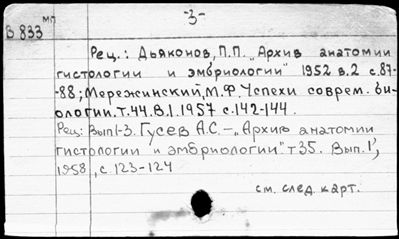 -3-
В 833 мп
Рец.: Дьяконов, П.П. „Архив анатомии
гистологии и эмбриологии" 1952 в.2 с.87-
-88; Мережинский, М.Ф. Успехи соврем. би-
ологии. т.44. В.1. 1957 с.142-144.
Рец: Вып1-3. Гусев А.С. – „Архив анатомии
гистологии и эмбриологии" т35. Вып. 1,
1958, с. 123-124
см. след. карт.